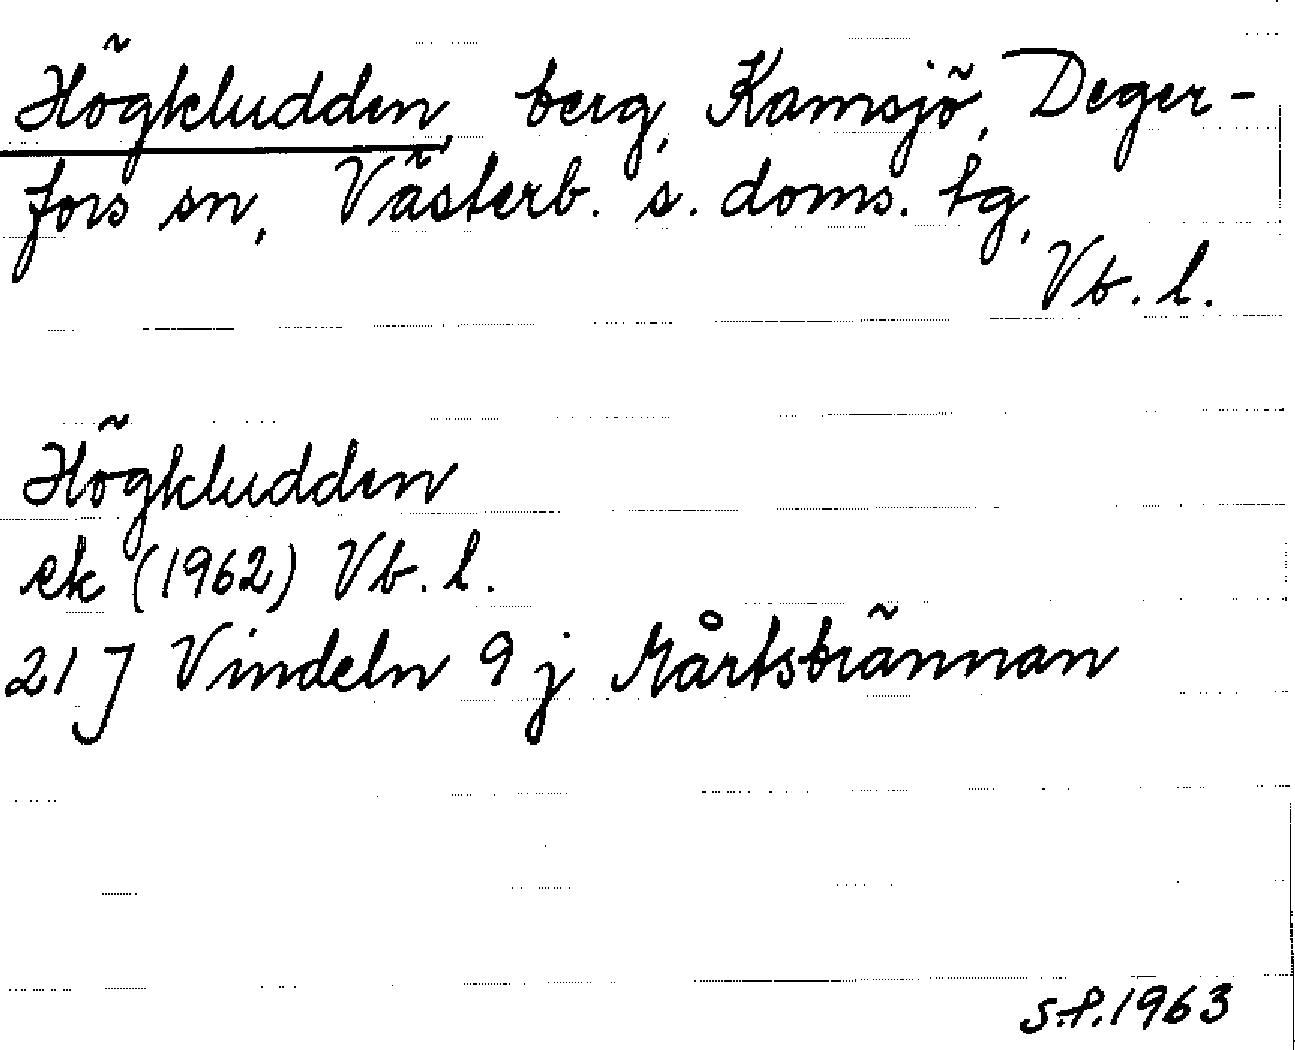 Högkludden, berg, Kamsjö, Deger-
fors sn, Västerb. s. doms. tg,
Vb. l.
Högkludden
ek (1962) Vb. l.
21 J Vindeln 9 j Mårtsbrännan
s.f. 1963